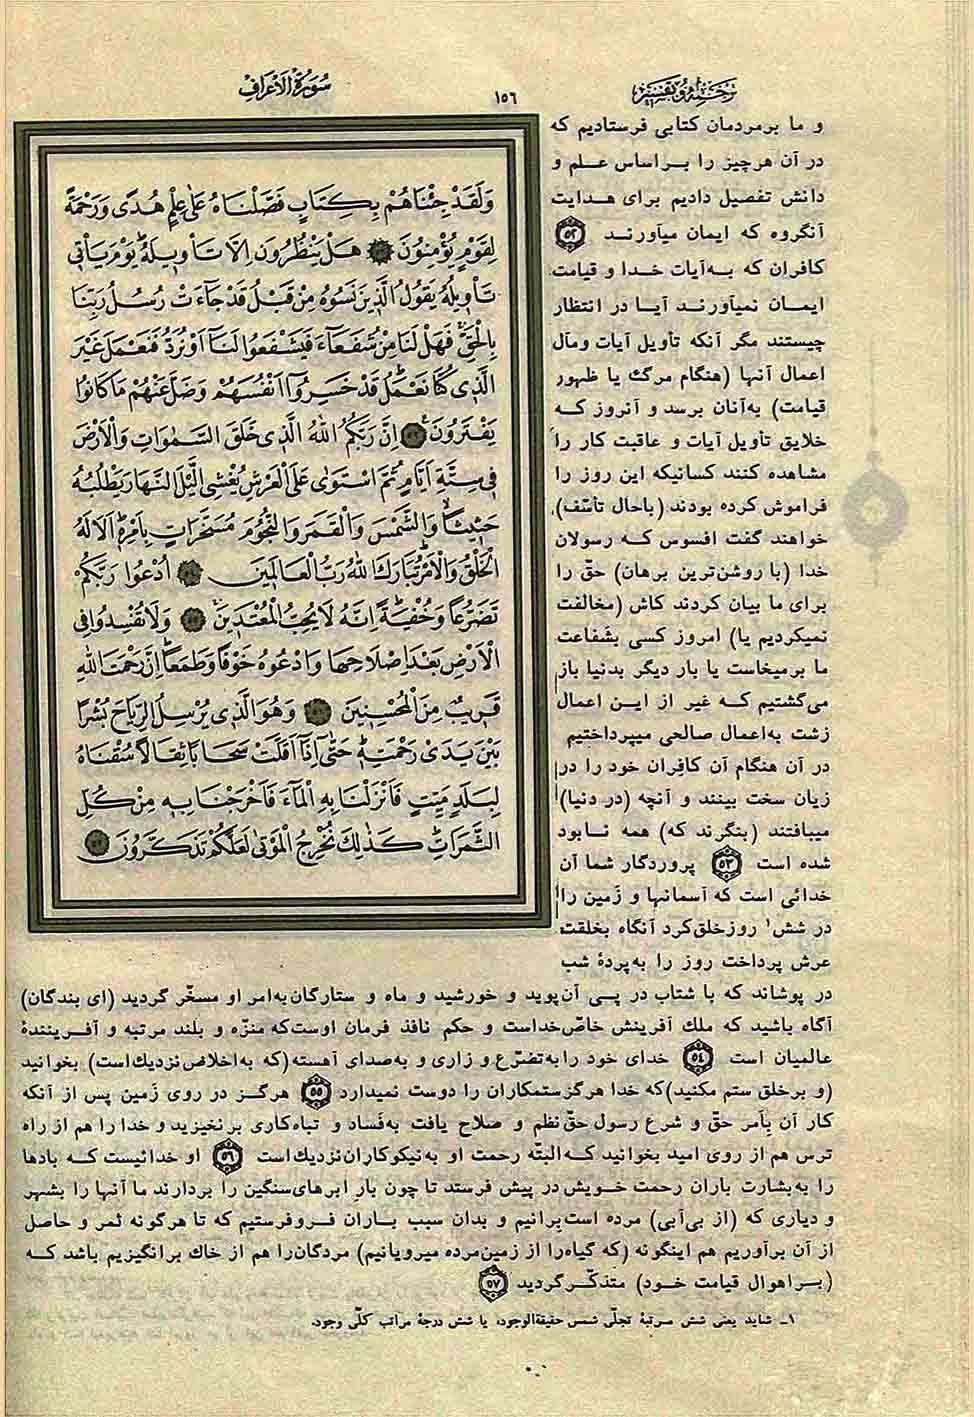 ترجمه و تفسیر
١٥٦
سُورَةُ الْاَعْرَافِ
وَلَقَدْ جِئْنَاهُمْ بِكِتَابٍ فَصَّلْنَاهُ عَلٰى عِلْمٍ هُدًى وَرَحْمَةً
لِقَوْمٍ يُؤْمِنُونَ ٥٢ هَلْ يَنْظُرُونَ اِلَّا تَأْوِيلَهُ يَوْمَ يَأْتِى
تَأْوِيلُهُ يَقُولُ الَّذِينَ نَسُوهُ مِنْ قَبْلُ قَدْ جَآءَتْ رُسُلُ رَبِّنَا
بِالْحَقِّ فَهَلْ لَنَا مِنْ شُفَعَآءَ فَيَشْفَعُوا لَنَآ اَوْ نُرَدُّ فَنَعْمَلَ غَيْرَ
الَّذِى كُنَّا نَعْمَلُ قَدْ خَسِرُوآ اَنْفُسَهُمْ وَضَلَّ عَنْهُمْ مَا كَانُوا
يَفْتَرُونَ ٥٣ اِنَّ رَبَّكُمُ اللّٰهُ الَّذِى خَلَقَ السَّمٰوَاتِ وَالْاَرْضَ
فِى سِتَّةِ اَيَّامٍ ثُمَّ اسْتَوٰى عَلَى الْعَرْشِ يُغْشِى الَّيْلَ النَّهَارَ يَطْلُبُهُ
حَثِيثًا وَالشَّمْسَ وَالْقَمَرَ وَالنُّجُومَ مُسَخَّرَاتٍ بِاَمْرِهِ اَلَا لَهُ
الْخَلْقُ وَالْاَمْرُ تَبَارَكَ اللّٰهُ رَبُّ الْعَالَمِينَ ٥٤ اُدْعُوا رَبَّكُمْ
تَضَرُّعًا وَخُفْيَةً اِنَّهُ لَا يُحِبُّ الْمُعْتَدِينَ ٥٥ وَلَا تُفْسِدُوا فِى
الْاَرْضِ بَعْدَ اِصْلَاحِهَا وَادْعُوهُ خَوْفًا وَطَمَعًا اِنَّ رَحْمَتَ اللّٰهِ
قَرِيبٌ مِنَ الْمُحْسِنِينَ ٥٦ وَهُوَ الَّذِى يُرْسِلُ الرِّيَاحَ بُشْرًا
بَيْنَ يَدَىْ رَحْمَتِهِ حَتّٰى اِذَآ اَقَلَّتْ سَحَابًا ثِقَالًا سُقْنَاهُ
لِبَلَدٍ مَيِّتٍ فَاَنْزَلْنَا بِهِ الْمَآءَ فَاَخْرَجْنَا بِهِ مِنْ كُلِّ
الثَّمَرَاتِ كَذٰلِكَ نُخْرِجُ الْمَوْتٰى لَعَلَّكُمْ تَذَكَّرُونَ ٥٧
و ما بر مردمان کتابی فرستادیم که
در آن هر چیز را براساس علم و
دانش تفصیل دادیم برای هدایت
آنگروه که ایمان میآورند ٥٢
کافران که به‌آیات خدا و قیامت
ایمان نمیآورند آیا در انتظار
چیستند مگر آنکه تأویل آیات ومآل
اعمال آنها (هنگام مرگ یا ظهور
قیامت) به‌آنان برسد و آنروز که
خلایق تأویل آیات و عاقبت کار را
مشاهده کنند کسانیکه این روز را
فراموش کرده بودند (باحال تأسّف)
خواهند گفت افسوس که رسولان
خدا (با روشن‌ترین برهان) حقّ را
برای ما بیان کردند کاش (مخالفت
نمیکردیم یا) امروز کسی بشفاعت
ما برمیخاست یا بار دیگر بدنیا باز
می‌گشتیم که غیر از این اعمال
زشت به‌اعمال صالحی میپرداختیم
در آن هنگام آن کافران خود را در
زیان سخت بینند و آنچه (در دنیا)
میبافتند (بنگرند که) همه نابود
شده است ٥٣ پروردگار شما آن
خدائی است که آسمانها و زمین را
در شش١ روز خلق کرد آنگاه بخلقت
عرش پرداخت روز را به‌پردهٔ شب
در پوشاند که با شتاب در پی آن پوید و خورشید و ماه و ستارگان به‌امر او مسخّر گردید (ای بندگان)
آگاه باشید که ملک آفرینش خاصّ خداست و حکم نافذ فرمان اوست که منزّه و بلند مرتبه و آفرینندهٔ
عالمیان است ٥٤ خدای خود را به‌تضرّع و زاری و به‌صدای آهسته (که به‌اخلاص نزدیک‌است) بخوانید
(و برخلق ستم مکنید) که خدا هرگز ستمکاران را دوست نمیدارد ٥٥ هرگز در روی زمین پس از آنکه
کار آن بأمر حقّ و شرع رسول حقّ نظم و صلاح یافت به‌فساد و تباه‌کاری برنخیزید و خدا را هم از راه
ترس هم از روی امید بخوانید که البتّه رحمت او به‌نیکوکاران نزدیک است ٥٦ او خدائیست که بادها
را به‌بشارت باران رحمت خویش در پیش فرستد تا چون بار ابرهای سنگین را بردارند ما آنها را بشهر
و دیاری که (از بی‌آبی) مرده است برانیم و بدان سبب باران فروفرستیم که تا هرگونه ثمر و حاصل
از آن برآوریم هم اینگونه (که گیاه را از زمین مرده میرویانیم) مردگان را هم از خاک برانگیزیم باشد که
(براهوال قیامت خود) متذکّر گردید ٥٧
١ـ شاید یعنی شش مرتبهٔ تجلّی شمس حقیقةالوجود، یا شش درجهٔ مراتب کلّی وجود.